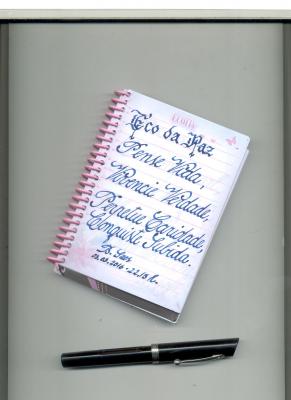 Eco da Paz
Pense Vida,
Vivencie Verdade,
Perpetue Caridade,
Conquiste Subida.